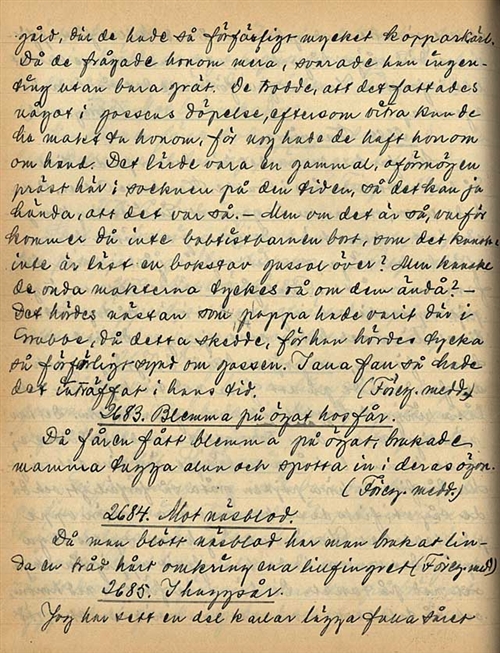 gård, där de hade så förfärligt mycket kopparkärl.
Då de frågade honom mera, svarade han ingen-
ting utan bara grät. De trodde, att det fattades
något i gossens döpelse, eftersom våra kunde
ha maktt honom, för nog hade de haft honom
om hand. Det lärde vara en gammal, oförmögen
präst här i socknen på den tiden, så det kan ju
hända, att det var så. – Men om det är så, varför
kommer då inte babtistbarnen bort, som det kanske
inte är läst en bokstav över? Men kanske
de onda makterna tyckes rå om dem ändå? –
Det hördes nästan som pappa hade varit där i
Grabbe, då detta skedde, för han hördes tycka
så förfärligt synd om gossen. I ana fan så hade
det inträffat i hans tid. (Föreg. medd.)
2683. Blemma på ögat hos får.
Då fåren fått blemma på ögat, brukade
mamma tugga alun och spotta in i deras ögon.
(Föreg. medd.)
2684. Mot näsblod.
Då man blött näsblod har man brukat lin-
da en tråd hårt omkring ena lillfingret (Föreg. medd)
2685. I huggsår.
Jag har sett en del karlar lägga fulla såret